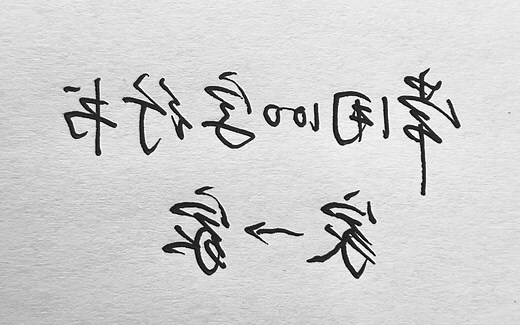 常用100字行书
家→家